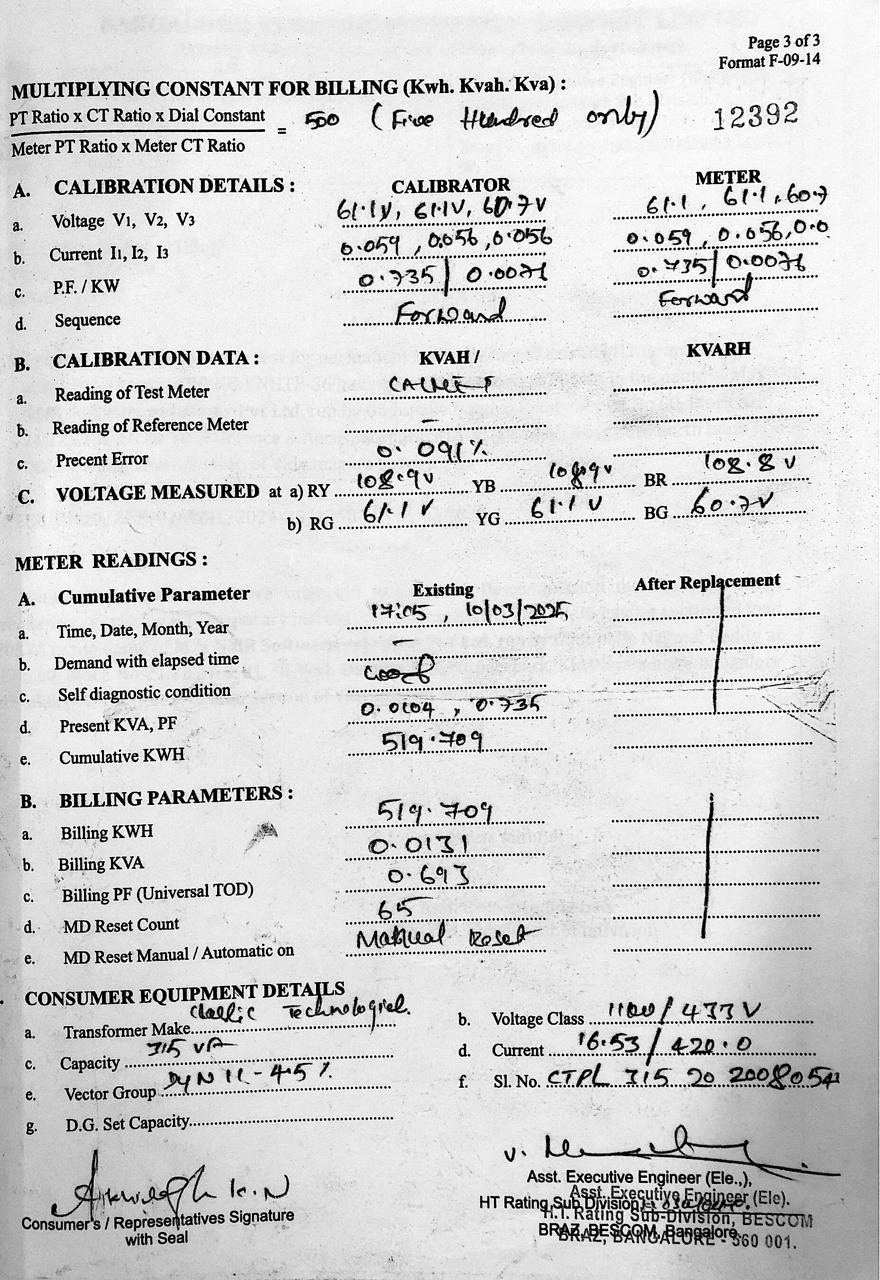 Page 3 of 3
Format F-09-14
MULTIPLYING CONSTANT FOR BILLING (Kwh. Kvah. Kva) :
PT Ratio x CT Ratio x Dial Constant
= 500 (Five Hundred only) 12392
Meter PT Ratio x Meter CT Ratio
A. CALIBRATION DETAILS : CALIBRATOR METER
a. Voltage V1, V2, V3 61.1V, 61.1V, 60.7V 61.1, 61.1, 60.7
b. Current I1, I2, I3 0.059, 0.056, 0.056 0.059, 0.056, 0.0
c. P.F. / KW 0.735/ 0.0076 0.735/ 0.0076
d. Sequence Forward Forward
B. CALIBRATION DATA : KVAH / KVARH
a. Reading of Test Meter
b. Reading of Reference Meter –
c. Precent Error 0.091%
C. VOLTAGE MEASURED at a) RY 108.9v YB 108.9v BR 108.8 v
b) RG 61.1 V YG 61.1 V BG 60.7V
METER READINGS :
A. Cumulative Parameter Existing After Replacement
a. Time, Date, Month, Year 17:05, 10/03/2025
b. Demand with elapsed time –
c. Self diagnostic condition Good
d. Present KVA, PF 0.0104, 0.735
e. Cumulative KWH 519.709
B. BILLING PARAMETERS :
a. Billing KWH 519.709
b. Billing KVA 0.0131
c. Billing PF (Universal TOD) 0.693
d. MD Reset Count 65
e. MD Reset Manual / Automatic on Manual Reset
CONSUMER EQUIPMENT DETAILS
a. Transformer Make Technologies. b. Voltage Class 11KV/433V
c. Capacity 315 VA d. Current 16.53/420.0
e. Vector Group DyN11-4.5% f. Sl. No. CTPL 315 20 2008054
g. D.G. Set Capacity
Consumer's / Representatives Signature
with Seal
Asst. Executive Engineer (Ele.,),
Asst. Executive Engineer (Ele).
HT Rating Sub Division
H.T. Rating Sub-Division, BESCOM
BRAZ, BESCOM, Bangalore.
BRAZ, BANGALORE - 560 001.